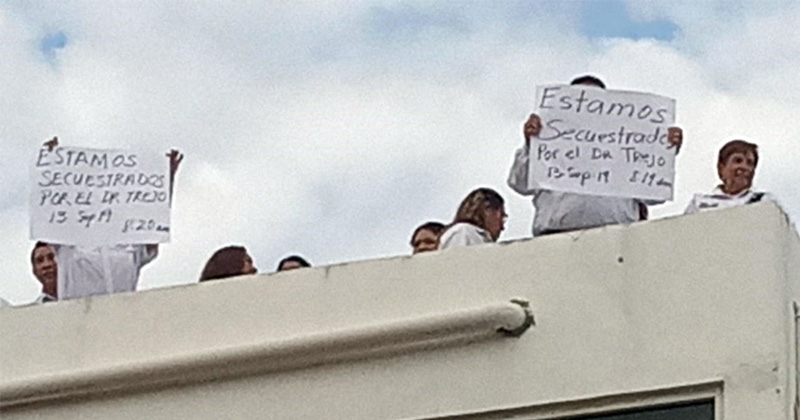 ESTAMOS
SECUESTRADOS
POR EL DR TREJO
13 Sep 19
8:20 am
Estamos
Secuestrado
Por el DR TREJO
13 Sep 19 8:19 am